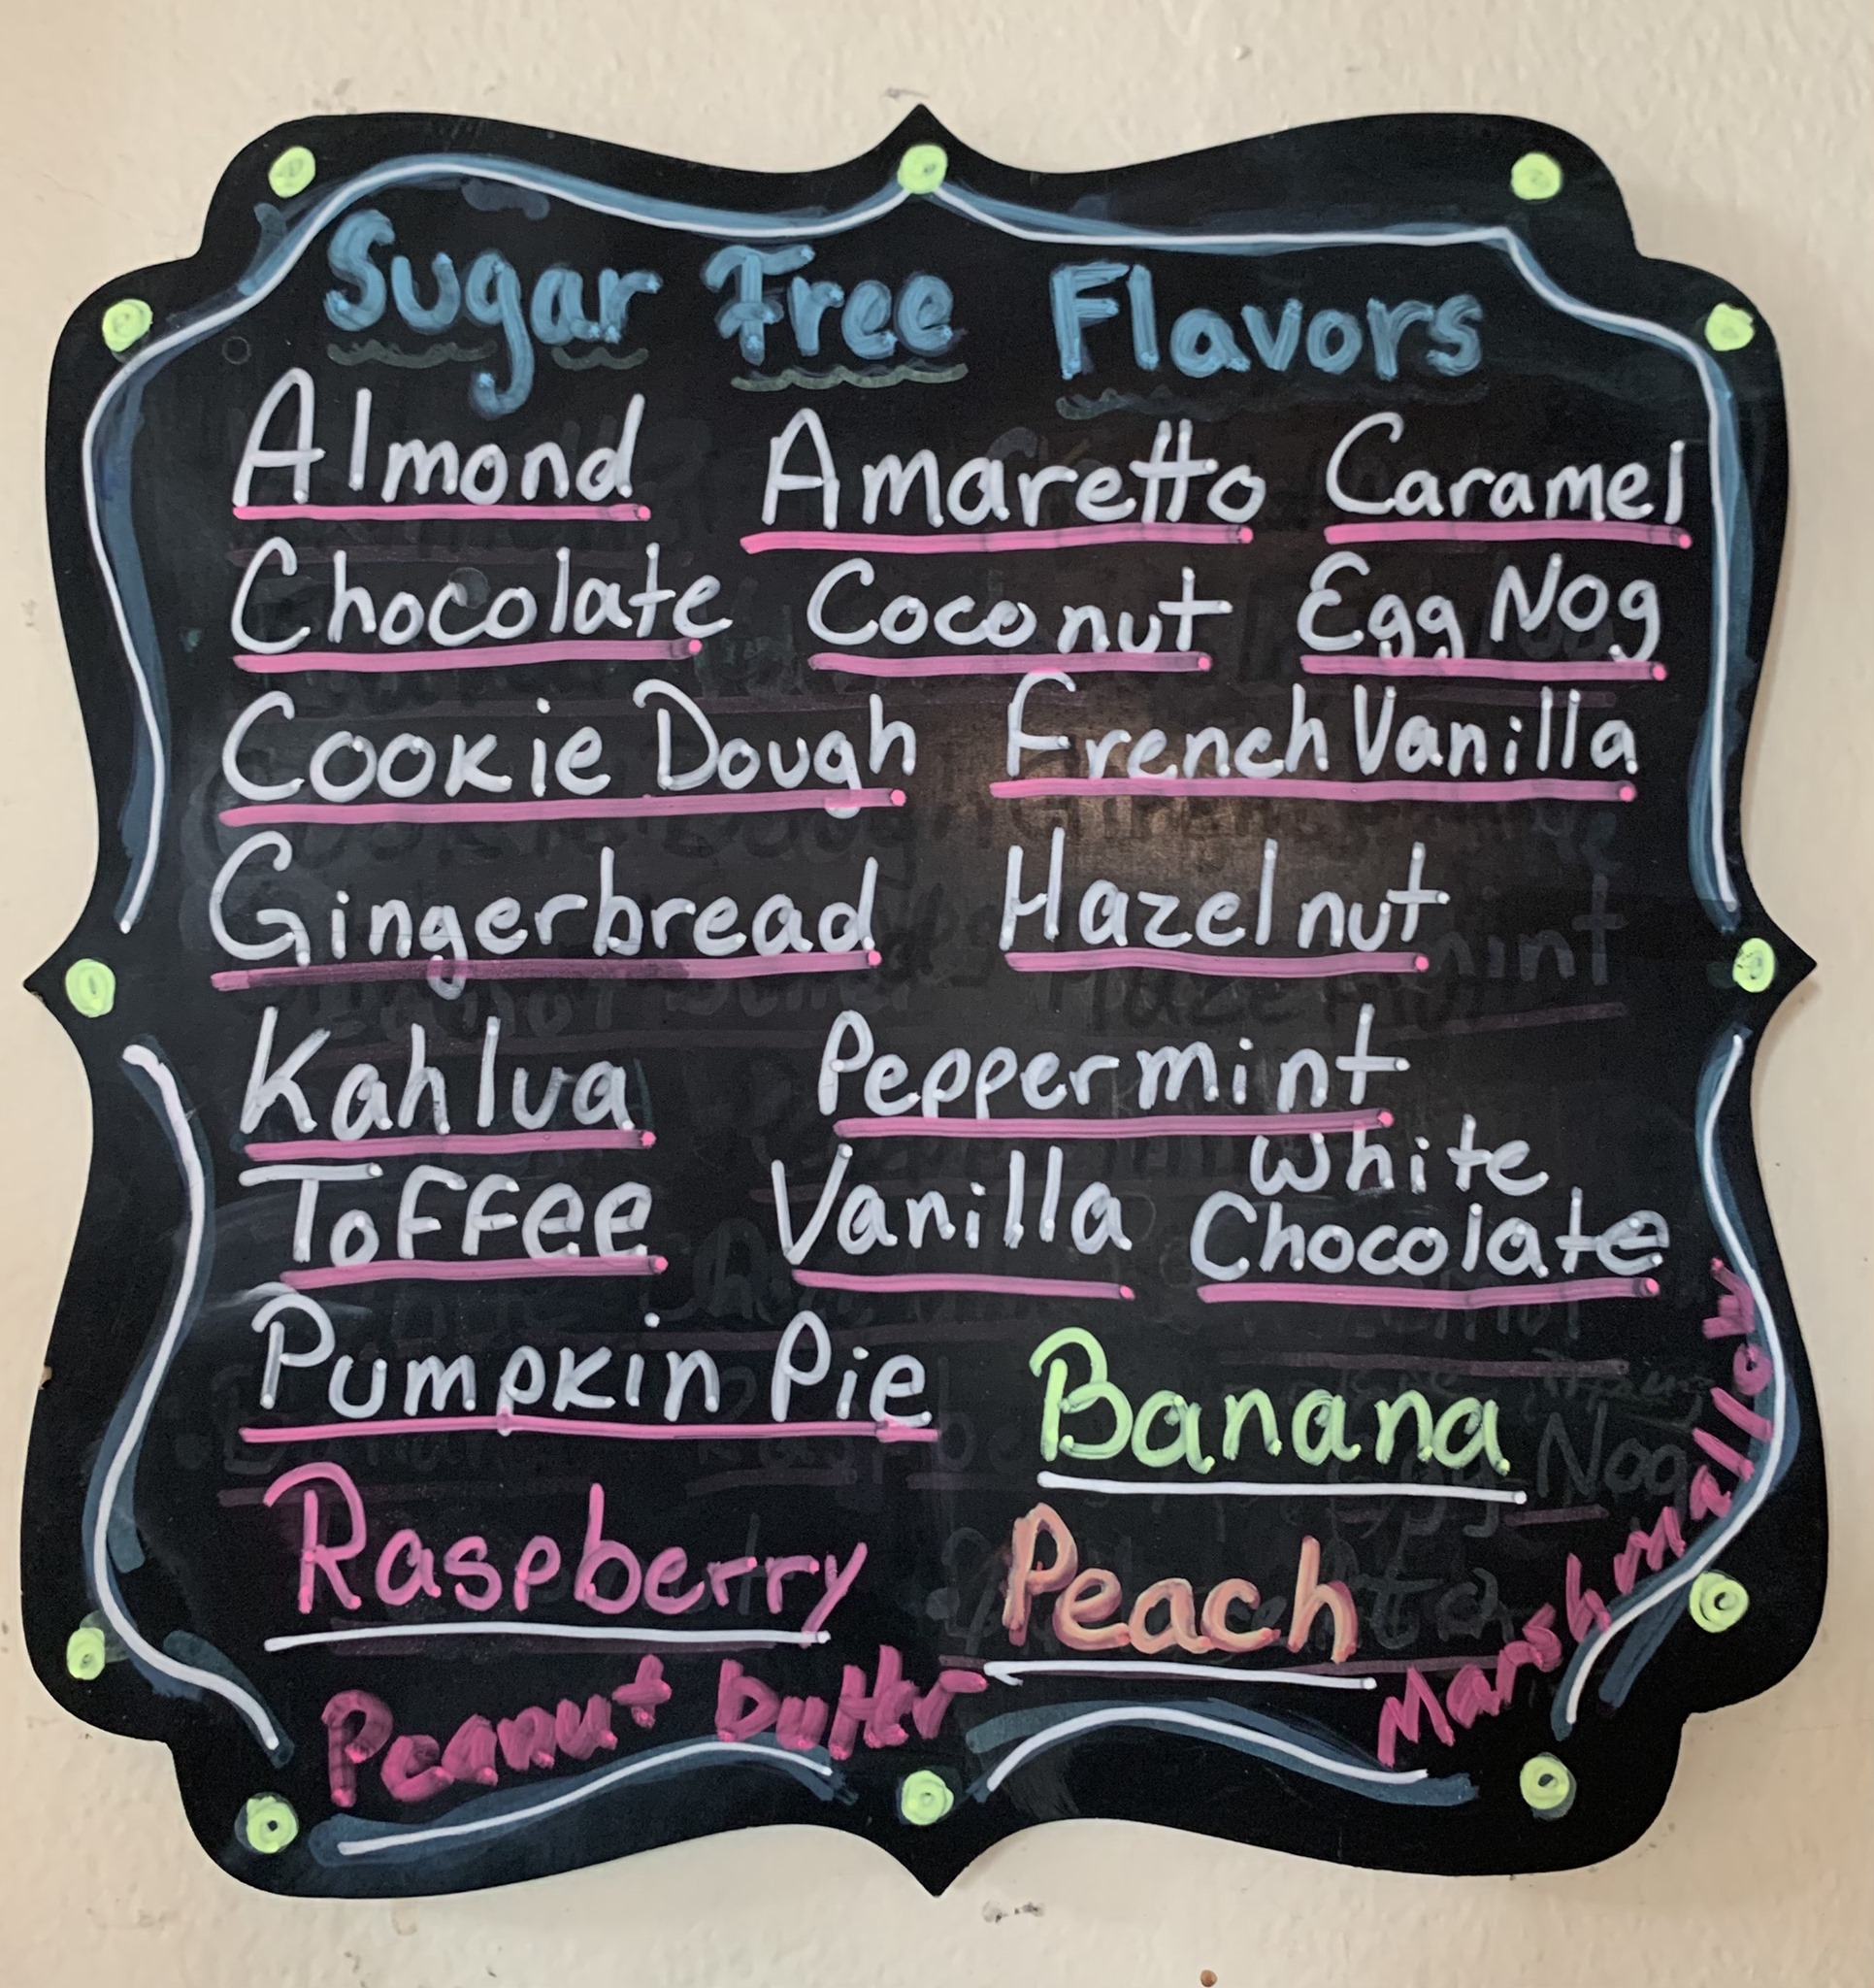 Sugar Free Flavors
Almond Amaretto Caramel
Chocolate Coconut Egg Nog
Cookie Dough French Vanilla
Gingerbread Hazelnut
Kahlua Peppermint
Toffee Vanilla White
Chocolate
Pumpkin Pie Banana
Raspberry Peach
Peanut butter Marshmallow